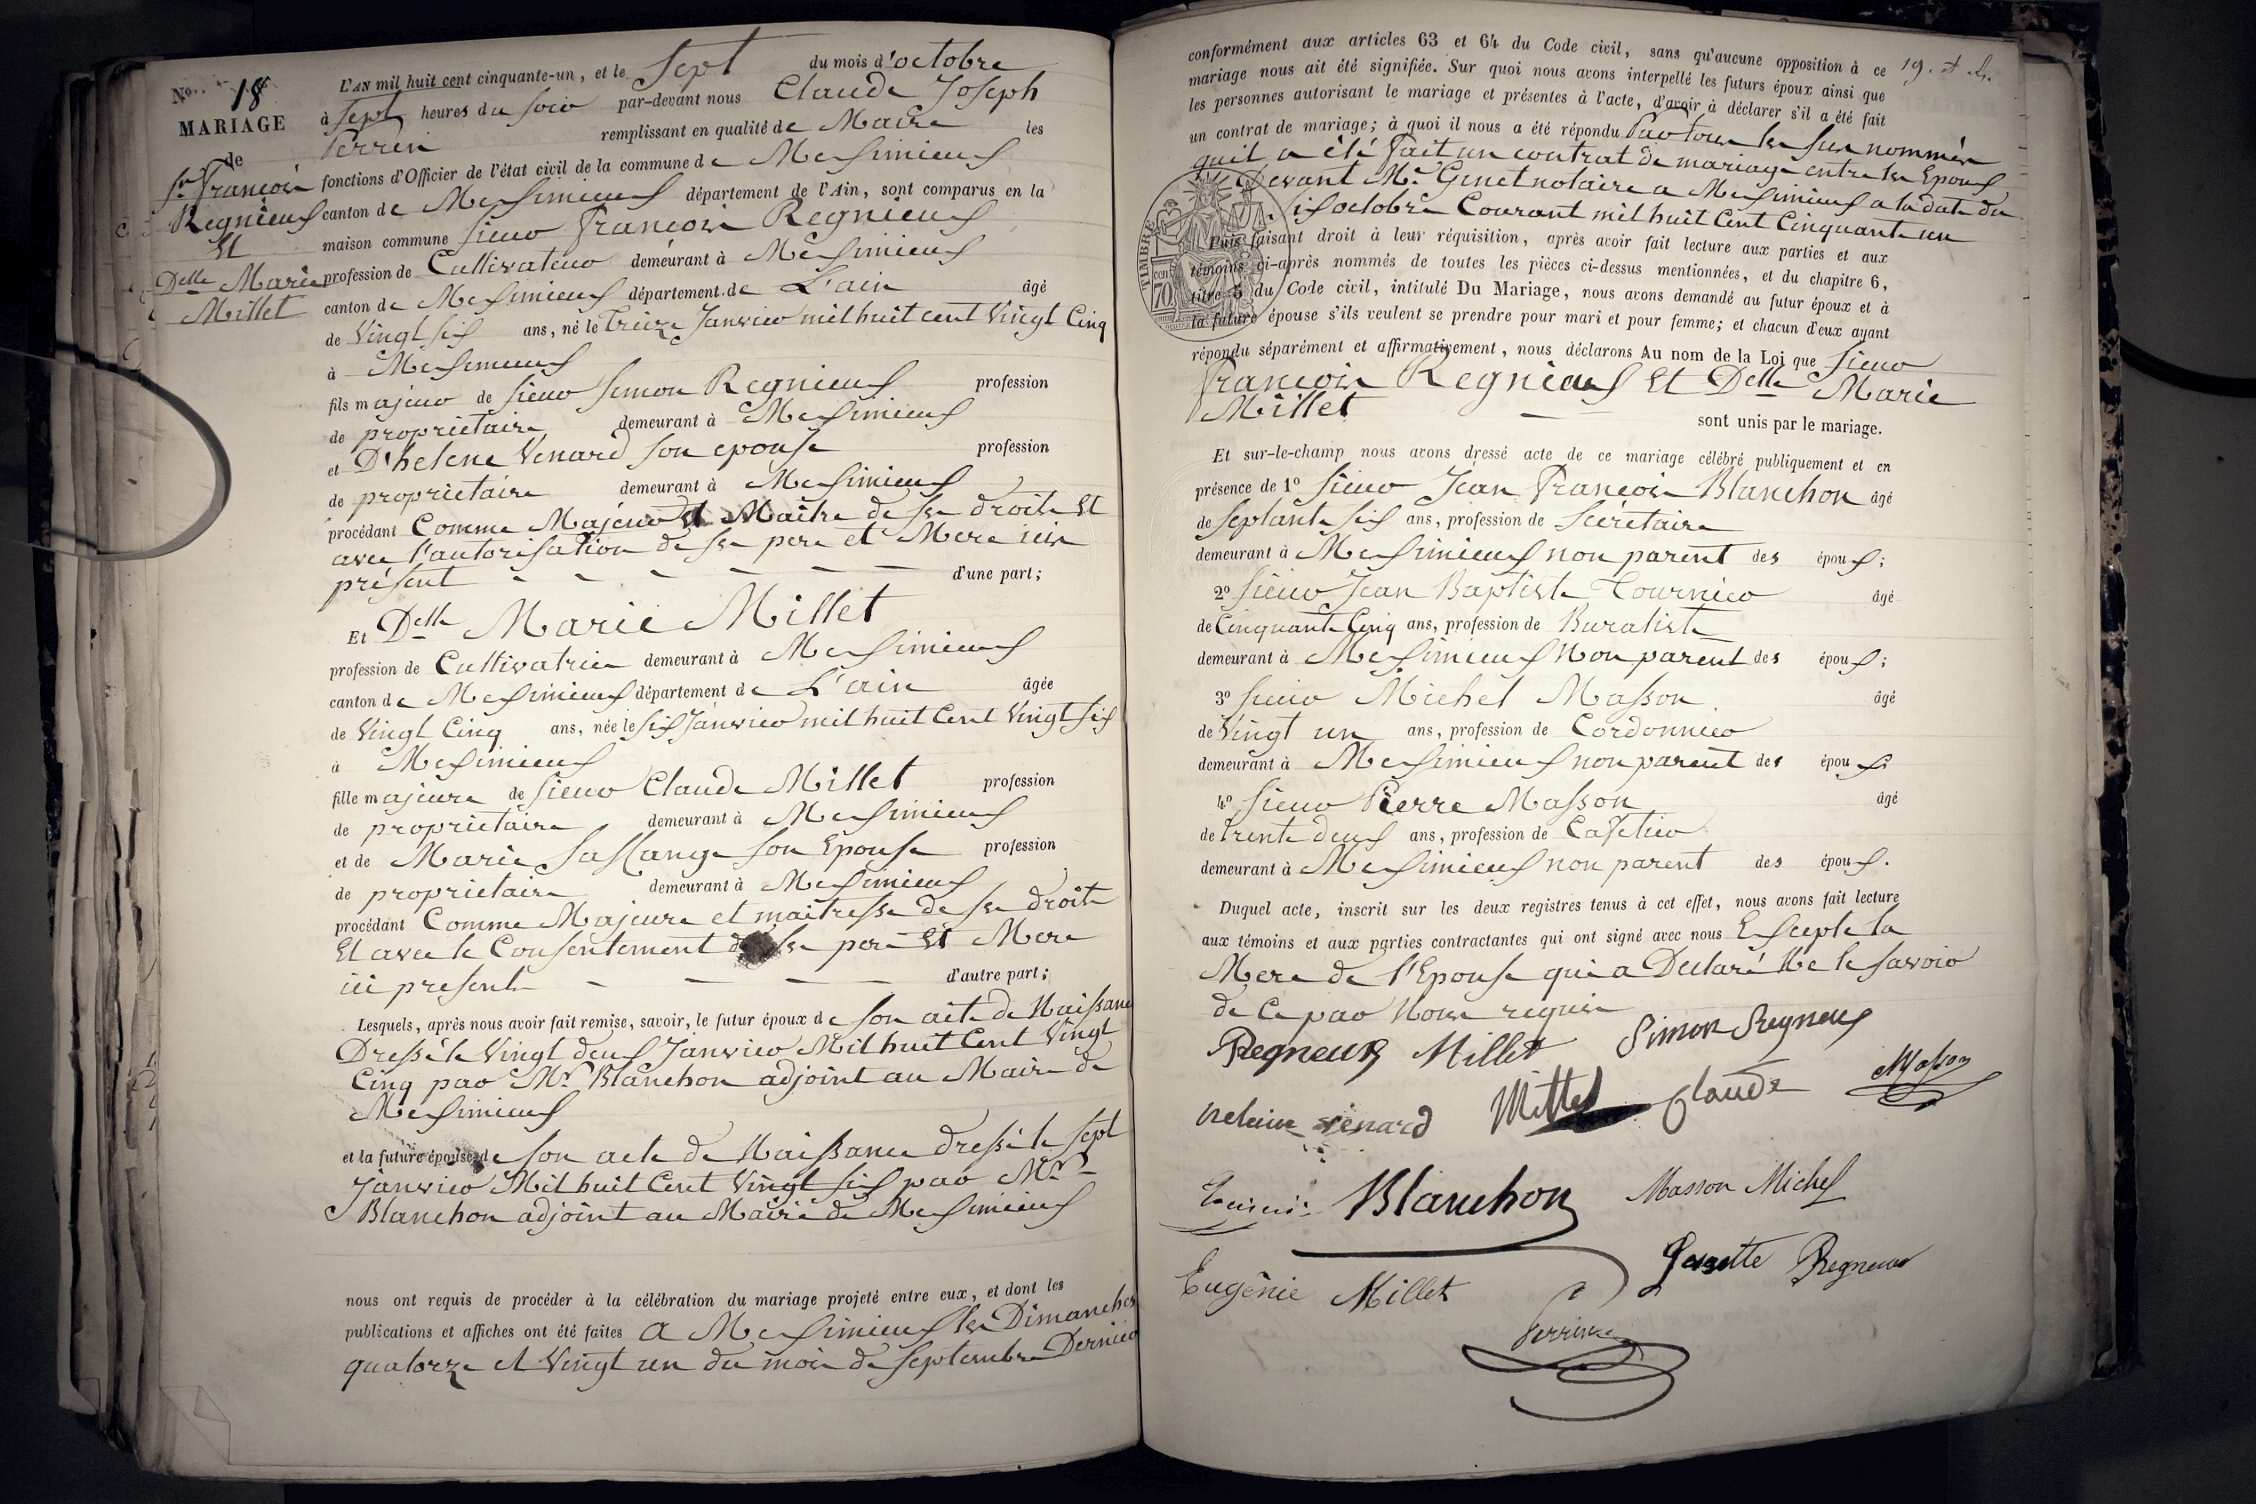 No. 18
MARIAGE
de
Sr François
Regnieux
Et
Delle Marie
Millet
L'AN mil huit cent cinquante-un, et le Sept du mois d'octobre
à Sept heures du Soir par-devant nous Claude Joseph
Perrin remplissant en qualité de Maire les
fonctions d'Officier de l'état civil de la commune de Meximieux
canton de Meximieux département de l'Ain, sont comparus en la
maison commune Sieur François Regnieux
profession de Cultivateur demeurant à Meximieux
canton de Meximieux département de L'ain âgé
de Vingt six ans, né le Treize Janvier mil huit cent Vingt Cinq
à Meximieux
fils majeur de Sieur Simon Regnieux profession
de propriétaire demeurant à Meximieux
et De helene Venard son epouse profession
de propriétaire demeurant à Meximieux
procédant Comme Majeur et Maître de ses droits Et
avec l'autorisation de ses pere et Mere ici
présent d'une part;
Et Delle Marie Millet
profession de Cultivatrice demeurant à Meximieux
canton de Meximieux département de L'ain âgée
de Vingt Cinq ans, née le six Janvier mil huit Cent Vingt six
à Meximieux
fille majeure de Sieur Claude Millet profession
de propriétaire demeurant à Meximieux
et de Marie son Epouse profession
de propriétaire demeurant à Meximieux
procédant Comme Majeure et maitresse de ses droits
Et avec le Consentement de ses pere Et Mere
ici present d'autre part;
Lesquels, après nous avoir fait remise, savoir, le futur époux de Son acte de Naissance
Dressé le Vingt deux Janvier Mil huit Cent Vingt
Cinq par Mr Blanchon adjoint au Maire de
Meximieux
et la future épouse de son acte de Naissance dressé le sept
Janvier Mil huit Cent Vingt six par Mr
Blanchon adjoint au Maire de Meximieux
nous ont requis de procéder à la célébration du mariage projeté entre eux, et dont les
publications et affiches ont été faites A Meximieux les Dimanches
quatorze et Vingt un du mois de Septembre Dernier
conformément aux articles 63 et 64 du Code civil, sans qu'aucune opposition à ce
mariage nous ait été signifiée. Sur quoi nous avons interpellé les futurs époux ainsi que
les personnes autorisant le mariage et présentes à l'acte, d'avoir à déclarer s'il a été fait
un contrat de mariage; à quoi il nous a été répondu Par tous les sus nommés
quil a été fait un contrat de mariage entre les Epoux
Devant Me Genet notaire a Meximieux a la date du
six octobre Courant mil huit Cent Cinquante un
TIMBRE
70
Puis faisant droit à leur réquisition, après avoir fait lecture aux parties et aux
témoins ci-après nommés de toutes les pièces ci-dessus mentionnées, et du chapitre 6,
titre 5 du Code civil, intitulé Du Mariage, nous avons demandé au futur époux et à
la future épouse s'ils veulent se prendre pour mari et pour femme; et chacun d'eux ayant
répondu séparément et affirmativement, nous déclarons Au nom de la Loi que Sieur
François Regnieux Et Delle Marie
Millet sont unis par le mariage.
Et sur-le-champ nous avons dressé acte de ce mariage célébré publiquement et en
présence de 1o Sieur Jean François Blanchon âgé
de Septante six ans, profession de Secrétaire
demeurant à Meximieux non parent des époux;
2o Sieur Jean Baptiste âgé
de Cinquante Cinq ans, profession de Buraliste
demeurant à Meximieux Non parent des époux;
3o Sieur Michel Masson âgé
de Vingt un ans, profession de Cordonnier
demeurant à Meximieux non parent des époux
4o Sieur Pierre Masson âgé
de trente deux ans, profession de Cafetier
demeurant à Meximieux non parent des époux.
Duquel acte, inscrit sur les deux registres tenus à cet effet, nous avons fait lecture
aux témoins et aux parties contractantes qui ont signé avec nous Excepte la
Mere de l'Epouse qui a Declaré Ne le savoir
de Ce par Nous requise
Regneux Millet Simon Regneux
venard Millet Claude Masson
Blanchon Masson Michel
Eugènie Millet Josette Regneux
Perrin